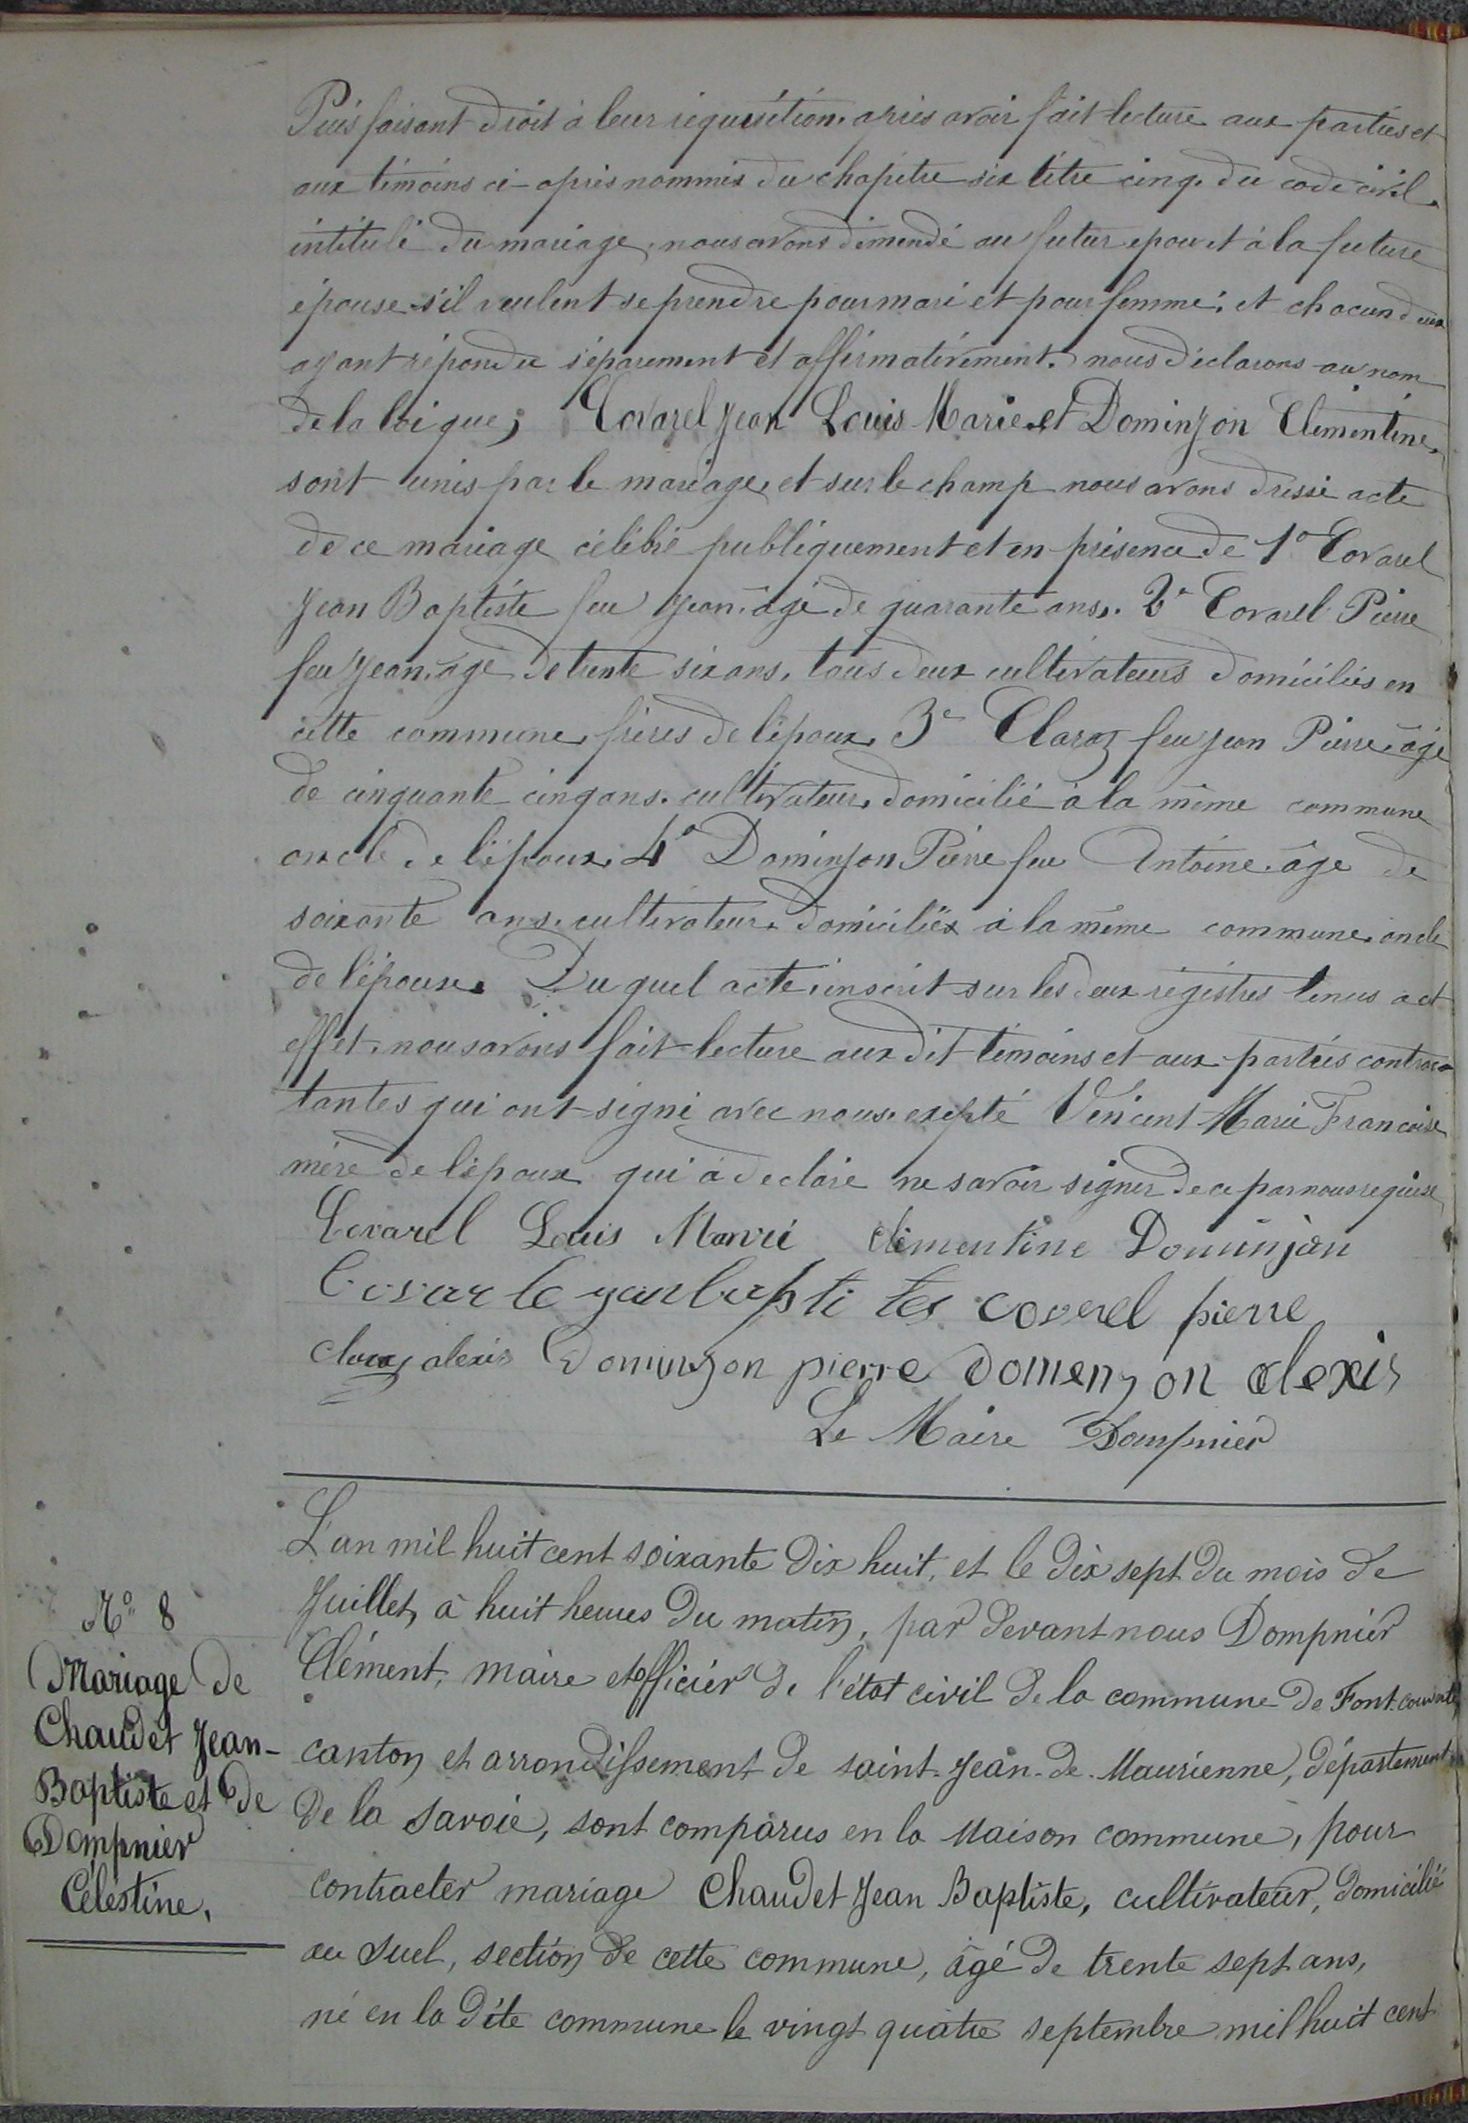 Puis faisant droit à leur requisition. après avoir fait lecture aux parties et
aux témoins ci-après nommés du chapitre six titre cinq. du code civil.
intitulé du mariage, nous avons démendé au futur epou et à la future
épouse s'il veulent se prendre pour mari et pour femme; et chacun d'eux
ayant répondu séparement et affirmativement. nous déclarons au nom
de la loi que; Covarel Jean Louis Marie et Dominjon Clémentine.
sont unis par le mariage, et sur le champ nous avons dréssé acte
de ce mariage célébré publiquement et en présence de 1° Covarel
Jean Baptiste feu Jean. âgé de quarante ans. 2° Covarel Pierre
feu Jean. âgé de trente six ans. tous deux cultivateurs domiciliés en
cette commune, frères de l'époux, 3° Claraz feu Jean Pierre. âgé
de cinquante cinq ans. cultivateur, domicilié à la même commune
oncle de l'époux. 4° Dominjon Pierre feu Antoine. âge de
soixante ans. cultivateur. domiciliés à la même commune. oncle
de l'épouse. Du quel acte. inscrit sur les deux régistres tenus a cet
effet. nous avons fait lecture aux dit témoins et aux parties contrac-
tantes qui ont signé avec nous. exepté Vincent Marie Francoise
mère de l'époux qui à declaré ne savoir signer de ce par nous requise
Covarel Louis Marie clementine Dominjon
Covarle jean bapti tes coverel pierre
claraz alexis Dominjon pierre Domenjon alexis
Le Maire Dompnier
L'an mil huit cent soixante dix huit, et le dix sept du mois de
Juillet, à huit heures du matin, par devant nous Dompnier
Clément, maire et officier de l'état civil de la commune de Font-couverte
canton et arrondissement de saint-Jean-de-Maurienne, département
de la Savoie, sont comparus en la Maison commune, pour
contracter mariage Chaudet Jean Baptiste, cultivateur, domicilié
au Suel, section de cette commune, âgé de trente sept ans,
né en la dite commune le vingt quatre septembre mil huit cent
N° 8
Mariage de
Chaudet Jean-
Baptiste et de
Dompnier
Célestine.